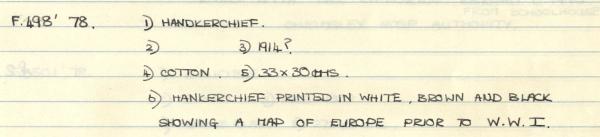 F.498' 78. 1) HANDKERCHIEF.
2) 3) 1914?
4) COTTON. 5) 33 x 30 cms.
6) HANKERCHIEF PRINTED IN WHITE, BROWN AND BLACK
SHOWING A MAP OF EUROPE PRIOR TO W.W.I.